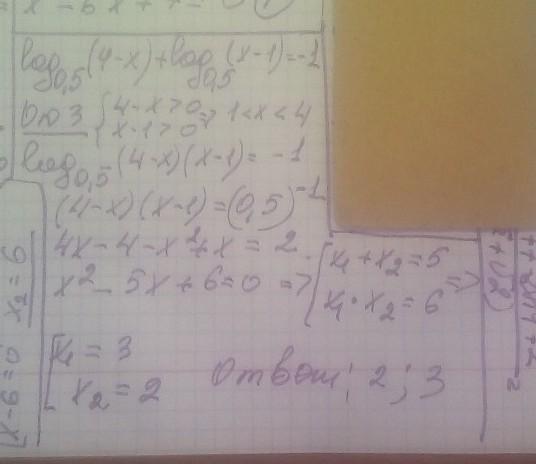 x - 6x + 7 =
log₀,₅(4-x)+log₀,₅(x-1)=-1
ОДЗ { 4-x>0 x-1>0 => 1<x<4
log₀,₅(4-x)(x-1)= -1
(4-x)(x-1)=(0,5)⁻¹
4x-4-x²+x = 2
x²- 5x+6=0 => [ x₁+x₂=5
x₁·x₂=6 =>
[ x₁ = 3
x₂ = 2
Ответ: 2; 3
x-6=0 x₂=6